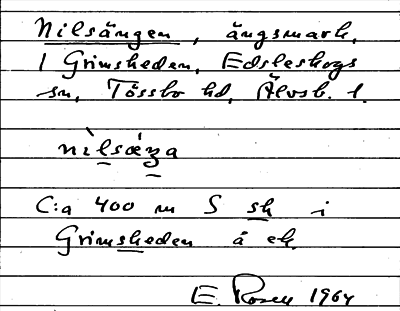 Nilsängen, ängsmark,
1 Grimsheden, Edsleskogs
sn, Tössbo hd, Älvsb. l.
nìlsǽŋa
C:a 400 m S sk i
Grimsheden å ek.
E. Rosell 1964